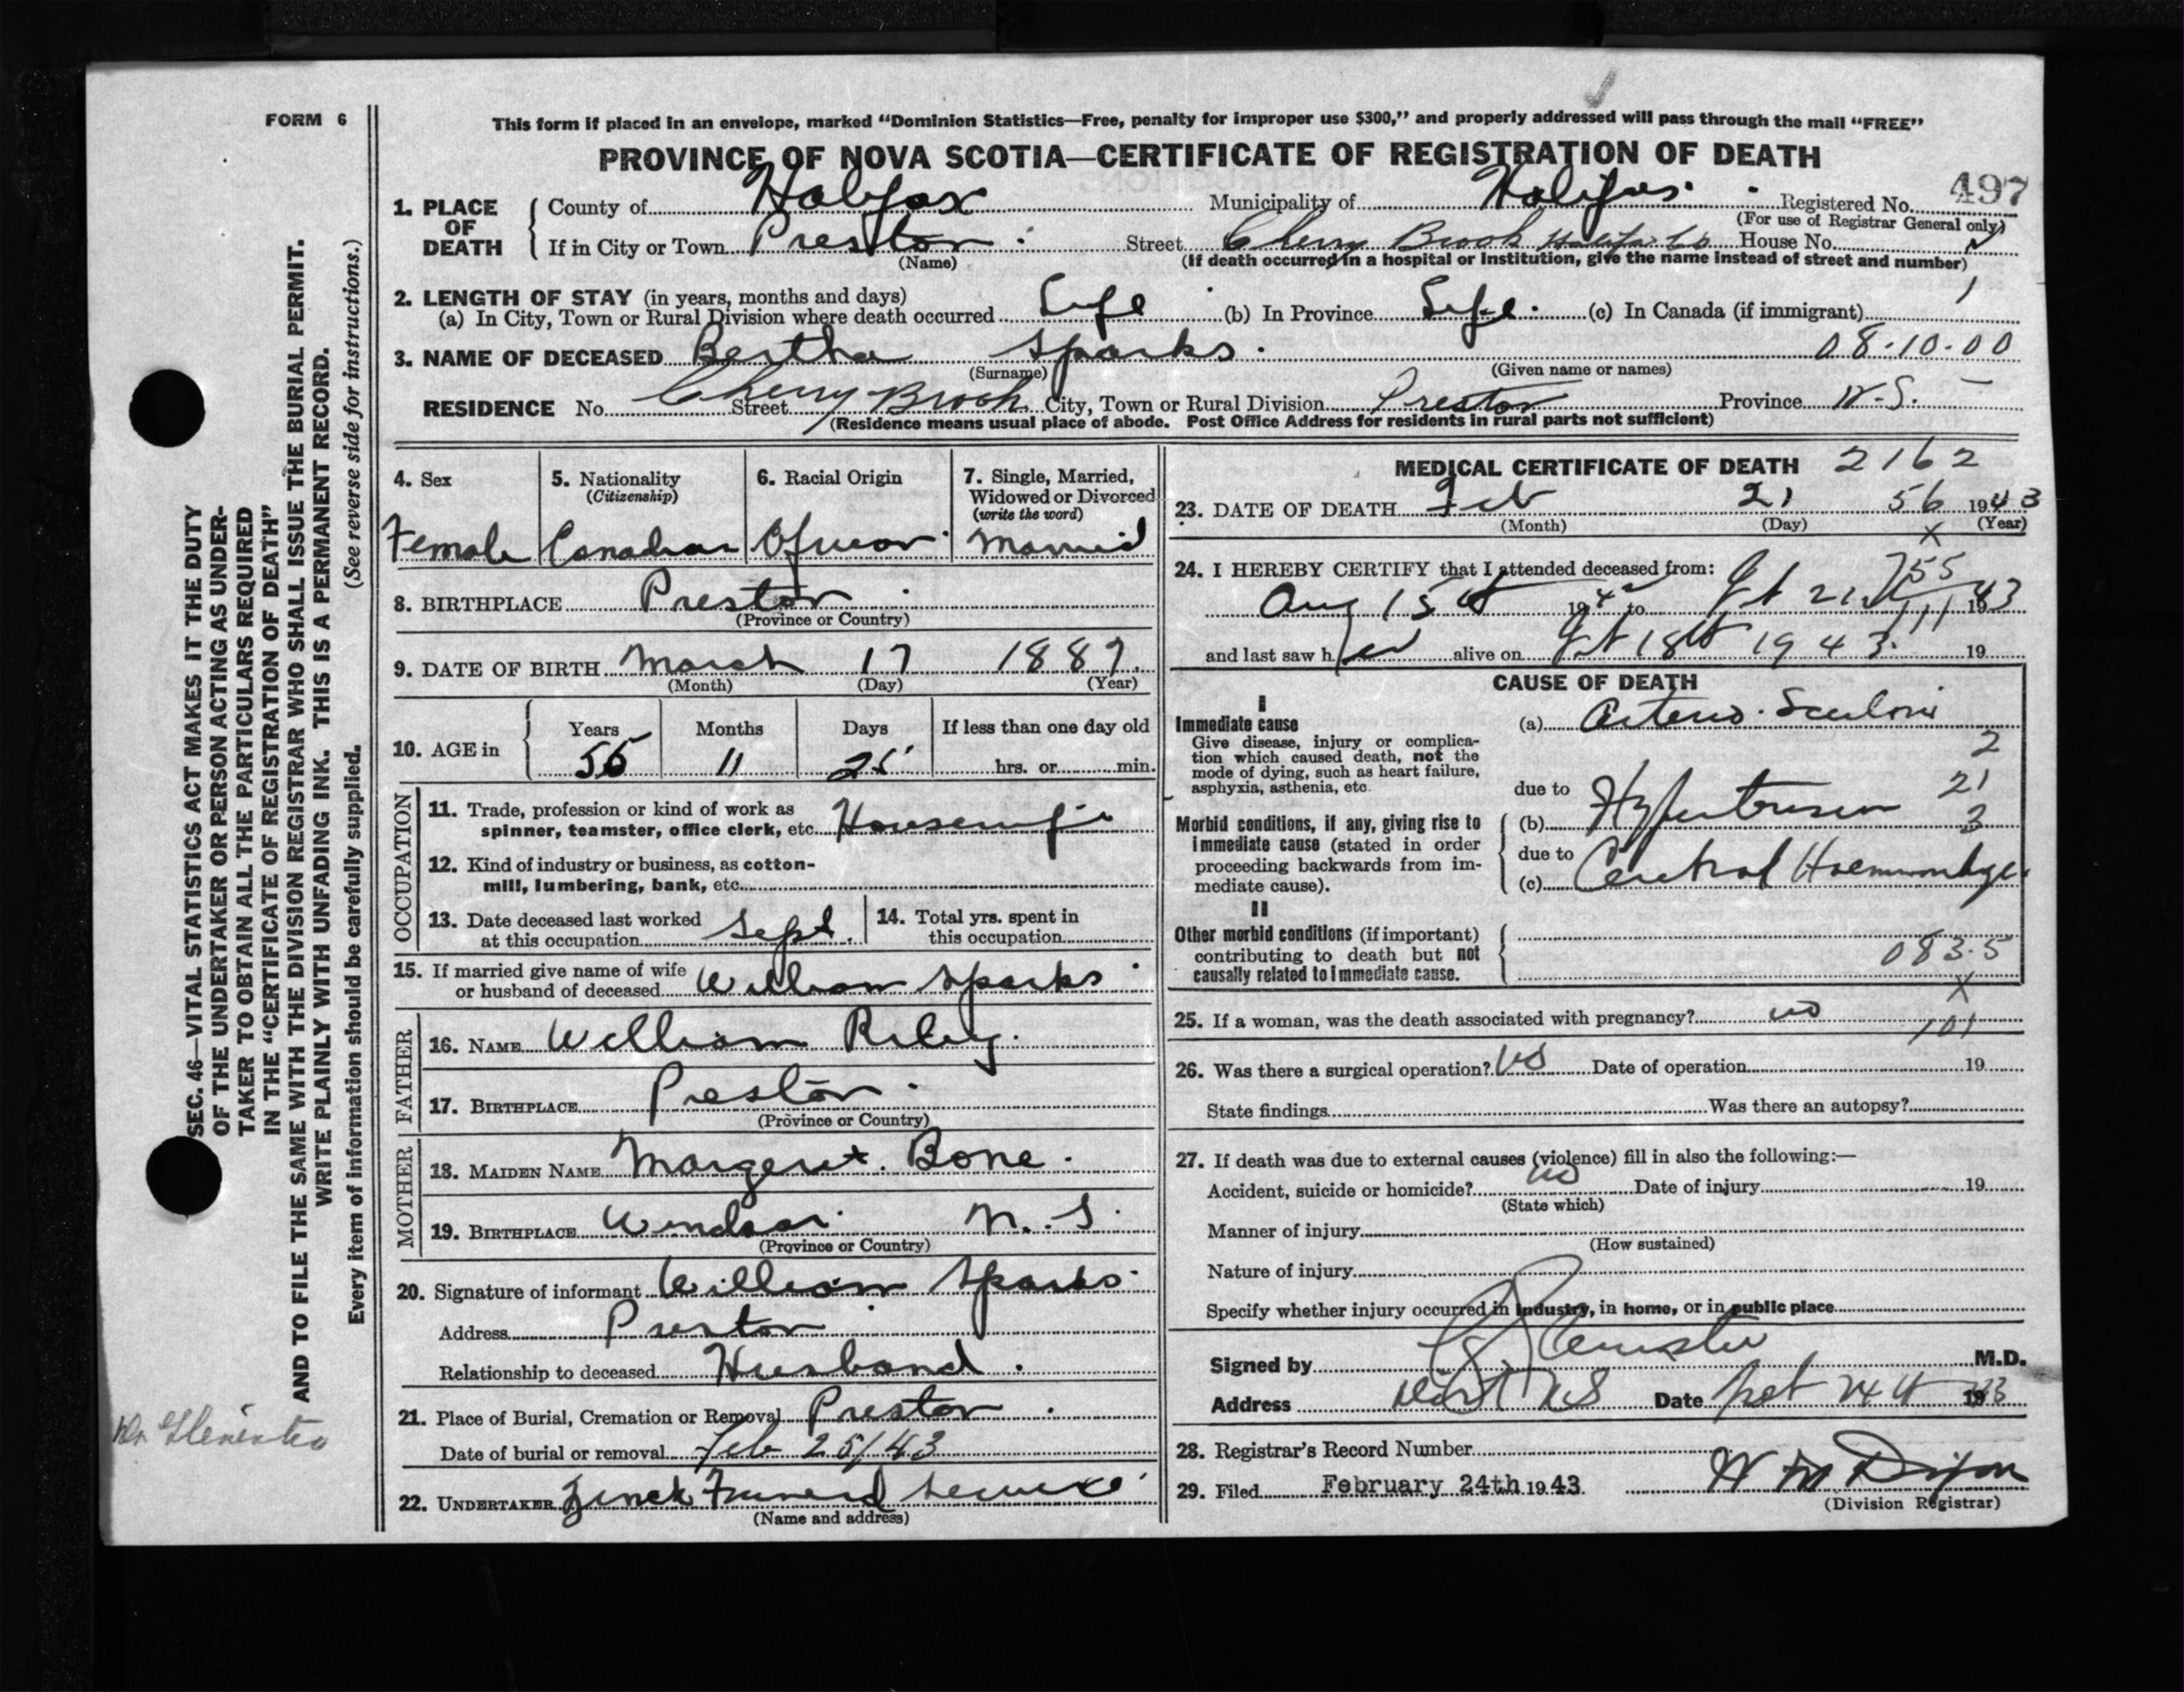 FORM 6
This form if placed in an envelope, marked “Dominion Statistics—Free, penalty for improper use $300,” and properly addressed will pass through the mail “FREE”
PROVINCE OF NOVA SCOTIA—CERTIFICATE OF REGISTRATION OF DEATH
1. PLACE OF DEATH
County of Halifax Municipality of Halifax Registered No. 497
(For use of Registrar General only)
If in City or Town Preston Street Cherry Brook Halifax Co House No.
(Name) (If death occurred in a hospital or institution, give the name instead of street and number)
2. LENGTH OF STAY (in years, months and days)
(a) In City, Town or Rural Division where death occurred Life (b) In Province Life (c) In Canada (if immigrant) 1
3. NAME OF DECEASED Bertha Sparks 08-10-00
(Surname) (Given name or names)
RESIDENCE No. Cherry Brook Street City, Town or Rural Division Preston Province N.S.
(Residence means usual place of abode. Post Office Address for residents in rural parts not sufficient)
4. Sex
Female
5. Nationality
(Citizenship)
Canadian
6. Racial Origin
7. Single, Married,
Widowed or Divorced
(write the word)
Married
8. BIRTHPLACE Preston
(Province or Country)
9. DATE OF BIRTH March 17 1887
(Month) (Day) (Year)
10. AGE in
Years Months Days If less than one day old
11 25 hrs. or min.
OCCUPATION
11. Trade, profession or kind of work as
spinner, teamster, office clerk, etc. Housewife
12. Kind of industry or business, as cotton-
mill, lumbering, bank, etc.
13. Date deceased last worked
at this occupation Sept.
14. Total yrs. spent in
this occupation
15. If married give name of wife
or husband of deceased William Sparks
FATHER
16. NAME William Riley.
17. BIRTHPLACE Preston
(Province or Country)
MOTHER
18. MAIDEN NAME Margeret. Bone
19. BIRTHPLACE Windsor N.S.
(Province or Country)
20. Signature of informant William Sparks
Address Preston
Relationship to deceased Husband.
21. Place of Burial, Cremation or Removal Preston
Date of burial or removal Feb 25/43
22. UNDERTAKER Zinck Funeral Service
(Name and address)
MEDICAL CERTIFICATE OF DEATH 2162
23. DATE OF DEATH Feb 21 56 1943
(Month) (Day) (Year)
X
24. I HEREBY CERTIFY that I attended deceased from:
Aug 15th 1942 to 21st 1943
and last saw her alive on 18th 1943. 19
CAUSE OF DEATH
I
Immediate cause
Give disease, injury or complica-
tion which caused death, not the
mode of dying, such as heart failure,
asphyxia, asthenia, etc.
(a)
2
due to 21
Morbid conditions, if any, giving rise to
immediate cause (stated in order
proceeding backwards from im-
mediate cause).
(b) Hypertension 3
due to
(c) Haemorrhage
II
Other morbid conditions (if important)
contributing to death but not
causally related to immediate cause.
083.5
X
25. If a woman, was the death associated with pregnancy? no
101
26. Was there a surgical operation? Date of operation 19
State findings Was there an autopsy?
27. If death was due to external causes (violence) fill in also the following:—
Accident, suicide or homicide? no Date of injury 19
(State which)
Manner of injury
(How sustained)
Nature of injury
Specify whether injury occurred in industry, in home, or in public place
Signed by M.D.
Address Dart NS Date 24th 1943
28. Registrar's Record Number
29. Filed February 24th 1943. W M Dixon
(Division Registrar)
SEC. 46—VITAL STATISTICS ACT MAKES IT THE DUTY
OF THE UNDERTAKER OR PERSON ACTING AS UNDER-
TAKER TO OBTAIN ALL THE PARTICULARS REQUIRED
IN THE “CERTIFICATE OF REGISTRATION OF DEATH”
AND TO FILE THE SAME WITH THE DIVISION REGISTRAR WHO SHALL ISSUE THE BURIAL PERMIT.
WRITE PLAINLY WITH UNFADING INK. THIS IS A PERMANENT RECORD.
(See reverse side for instructions.)
Every item of information should be carefully supplied.